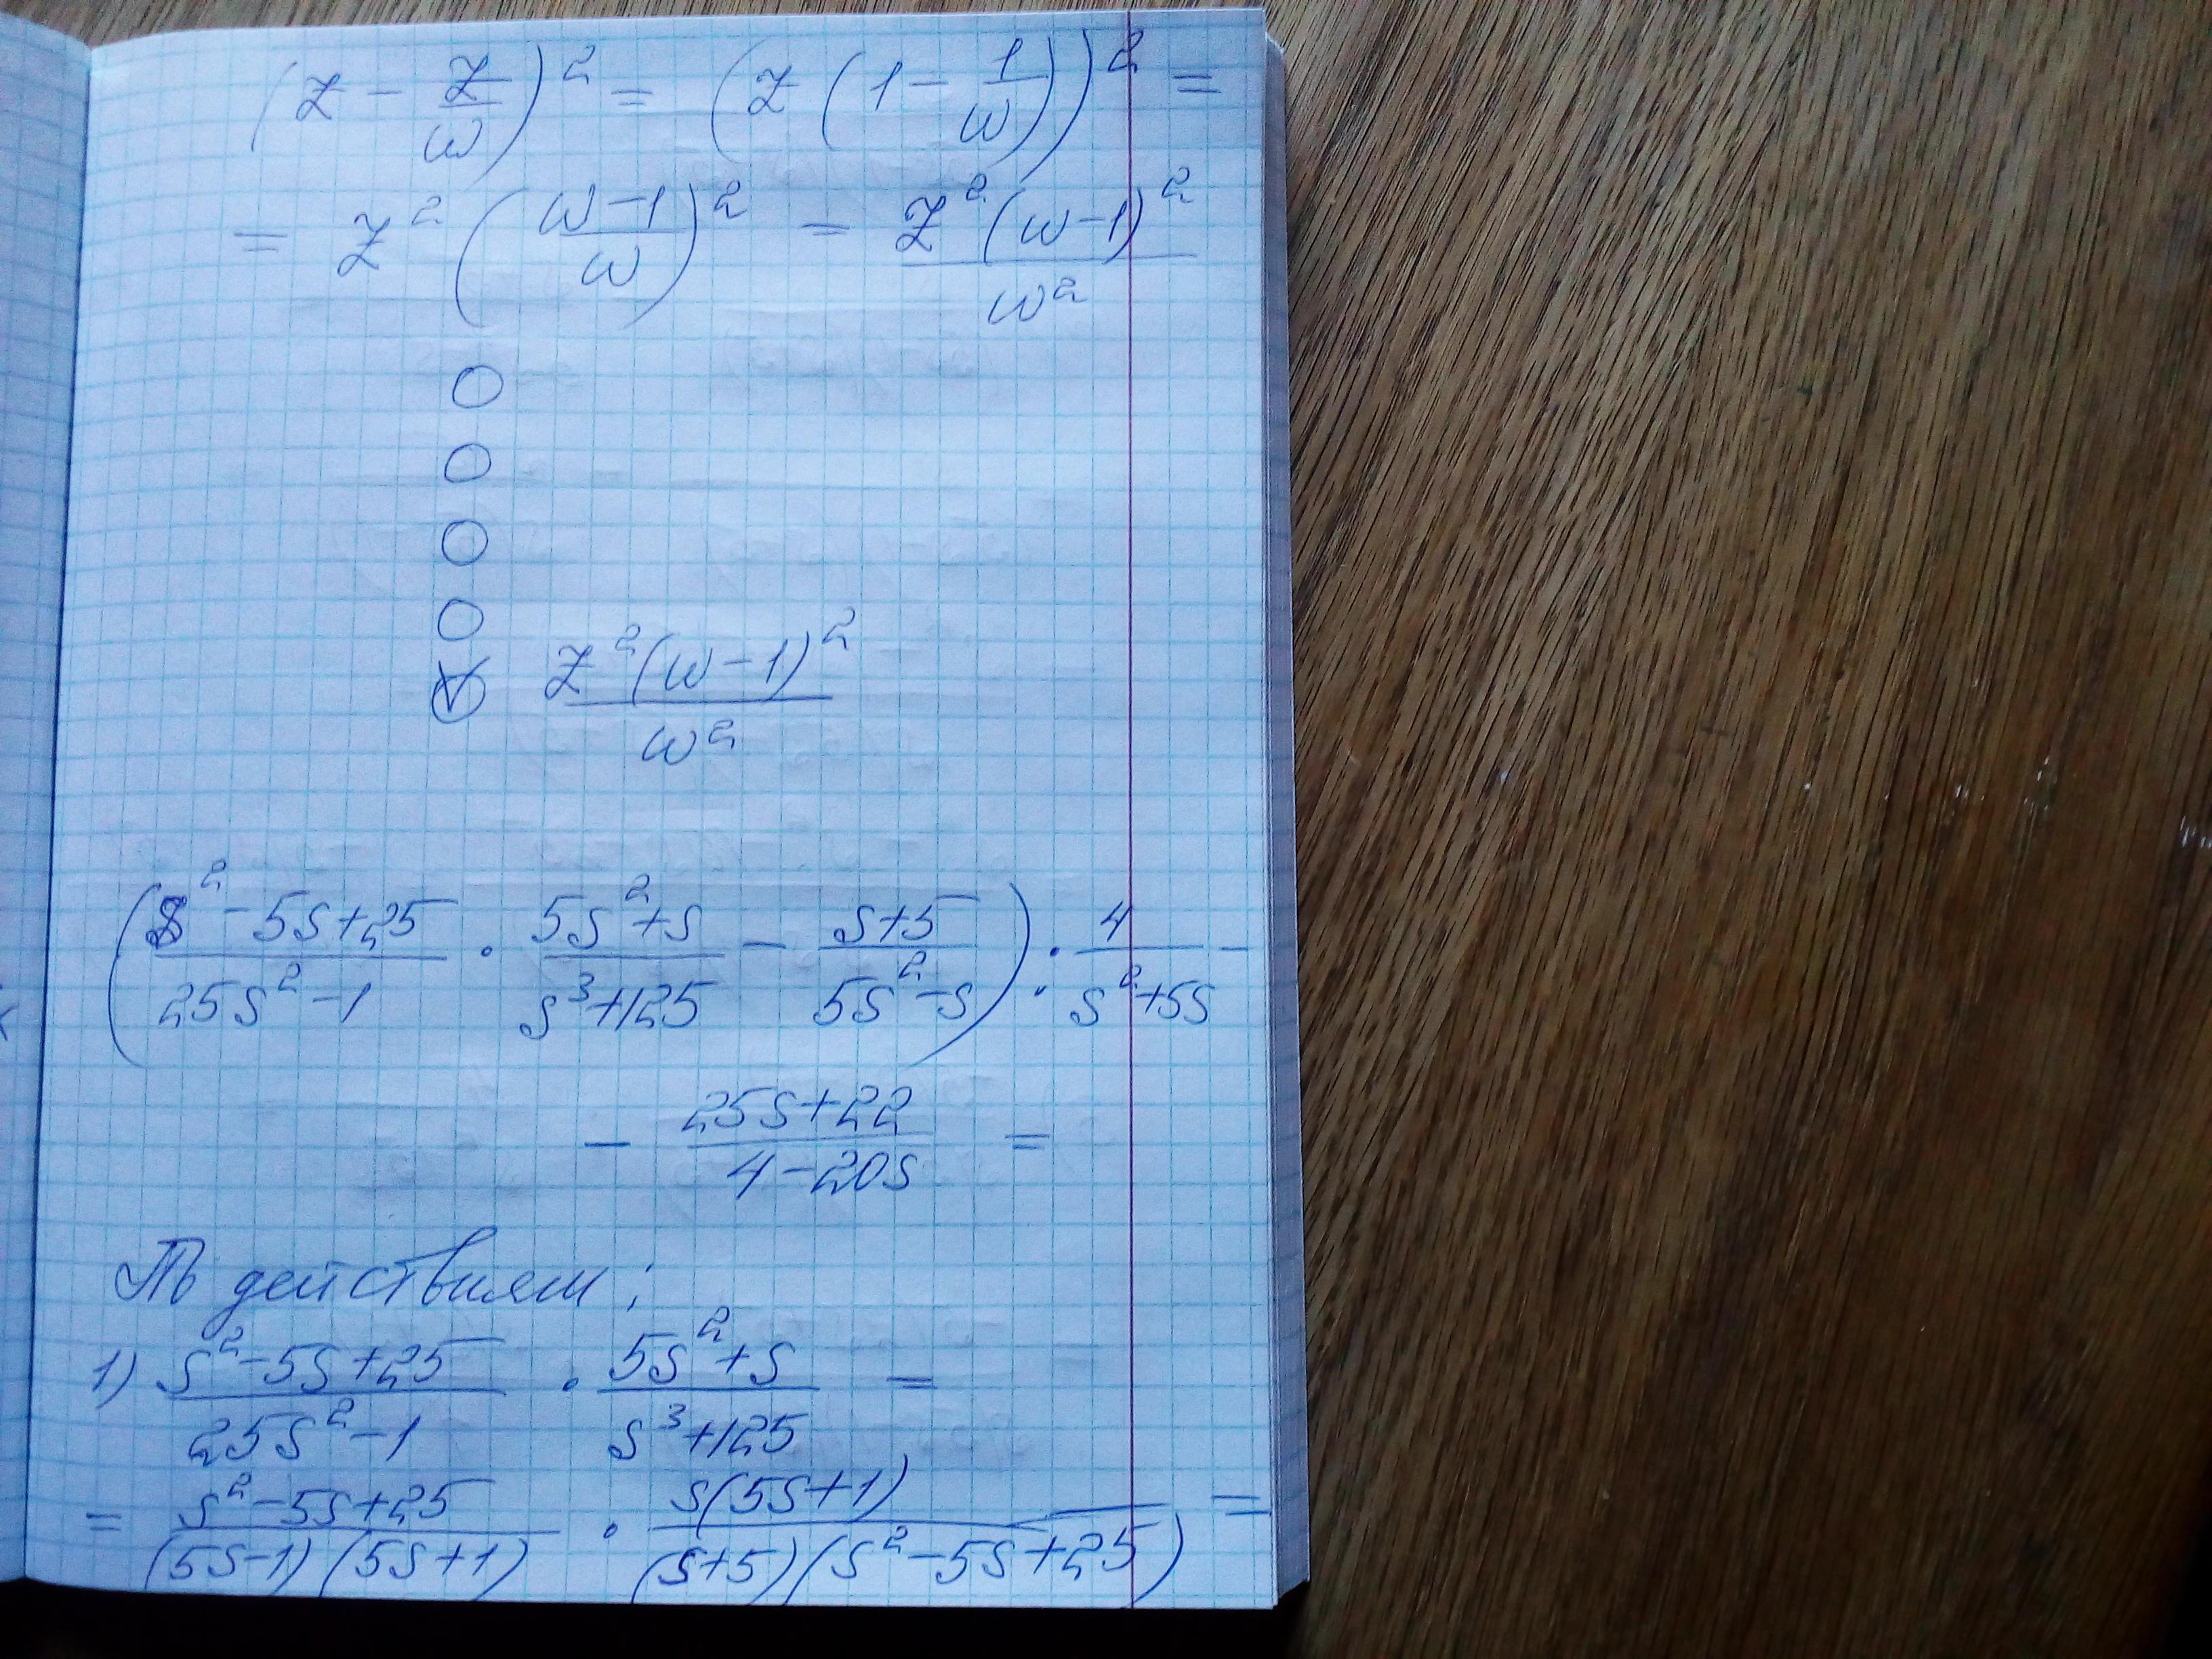 (z - z/w)² = (z(1 - 1/w))² =
= z²((w-1)/w)² = z²(w-1)²/w²
z²(w-1)²/w²
((s²-5s+25)/(25s²-1) · (5s²+s)/(s³+125) - (s+5)/(5s²-s)) : 4/(s²+5s) -
- (25s+22)/(4-20s) =
По действиям:
1) (s²-5s+25)/(25s²-1) · (5s²+s)/(s³+125) =
= (s²-5s+25)/((5s-1)(5s+1)) · s(5s+1)/((s+5)(s²-5s+25)) =